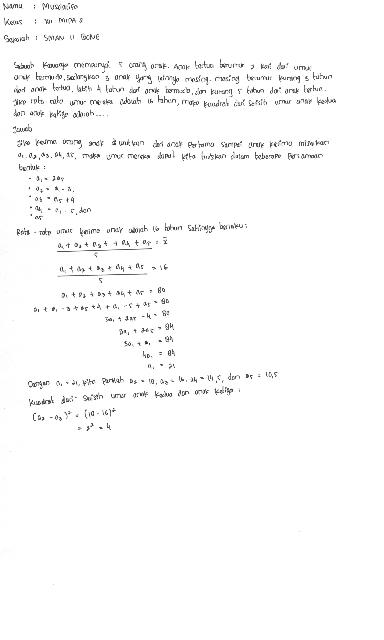 Nama : Musdalifa
Kelas : XII MIPA 2
Sekolah : SMAN 11 BONE
Sebuah keluarga mempunyai 5 orang anak. Anak tertua berumur 2 kali dari umur
anak termuda, sedangkan 3 anak yang lainnya masing-masing berumur kurang 3 tahun
dari anak tertua, lebih 4 tahun dari anak termuda, dan kurang 5 tahun dari anak tertua.
Jika rata-rata umur mereka adalah 16 tahun, maka kuadrat dari selisih umur anak kedua
dan anak ketiga adalah....
Jawab
Jika kelima orang anak diurutkan dari anak pertama sampai anak kelima misalkan
a1, a2, a3, a4, a5, maka umur mereka dapat kita tuliskan dalam beberapa persamaan
berikut :
• a1 = 2a5
• a3 = a5 + 4
• a4 = a1 - 5, dan
• a5
Rata-rata umur kelima anak adalah 16 tahun sehingga berlaku:
a1 + a2 + a3 + + a4 + a5 = x̄
5
a1 + a2 + a3 + a4 + a5 = 16
5
a1 + a2 + a3 + a4 + a5 = 80
a1 + a1 - 3 + a5 + 4 + a1 - 5 + a5 = 80
3a1 + 2a5 - 4 = 80
3a1 + 2a5 = 84
3a1 + a1 = 84
4a1 = 84
a1 = 21
Dengan a1 = 21, kita peroleh a2 = 18, a3 = 16, a4 = 14,5, dan a5 = 10,5
Kuadrat dari selisih umur anak kedua dan anak ketiga :
(a2 - a3)² = (18 - 16)²
= 2² = 4